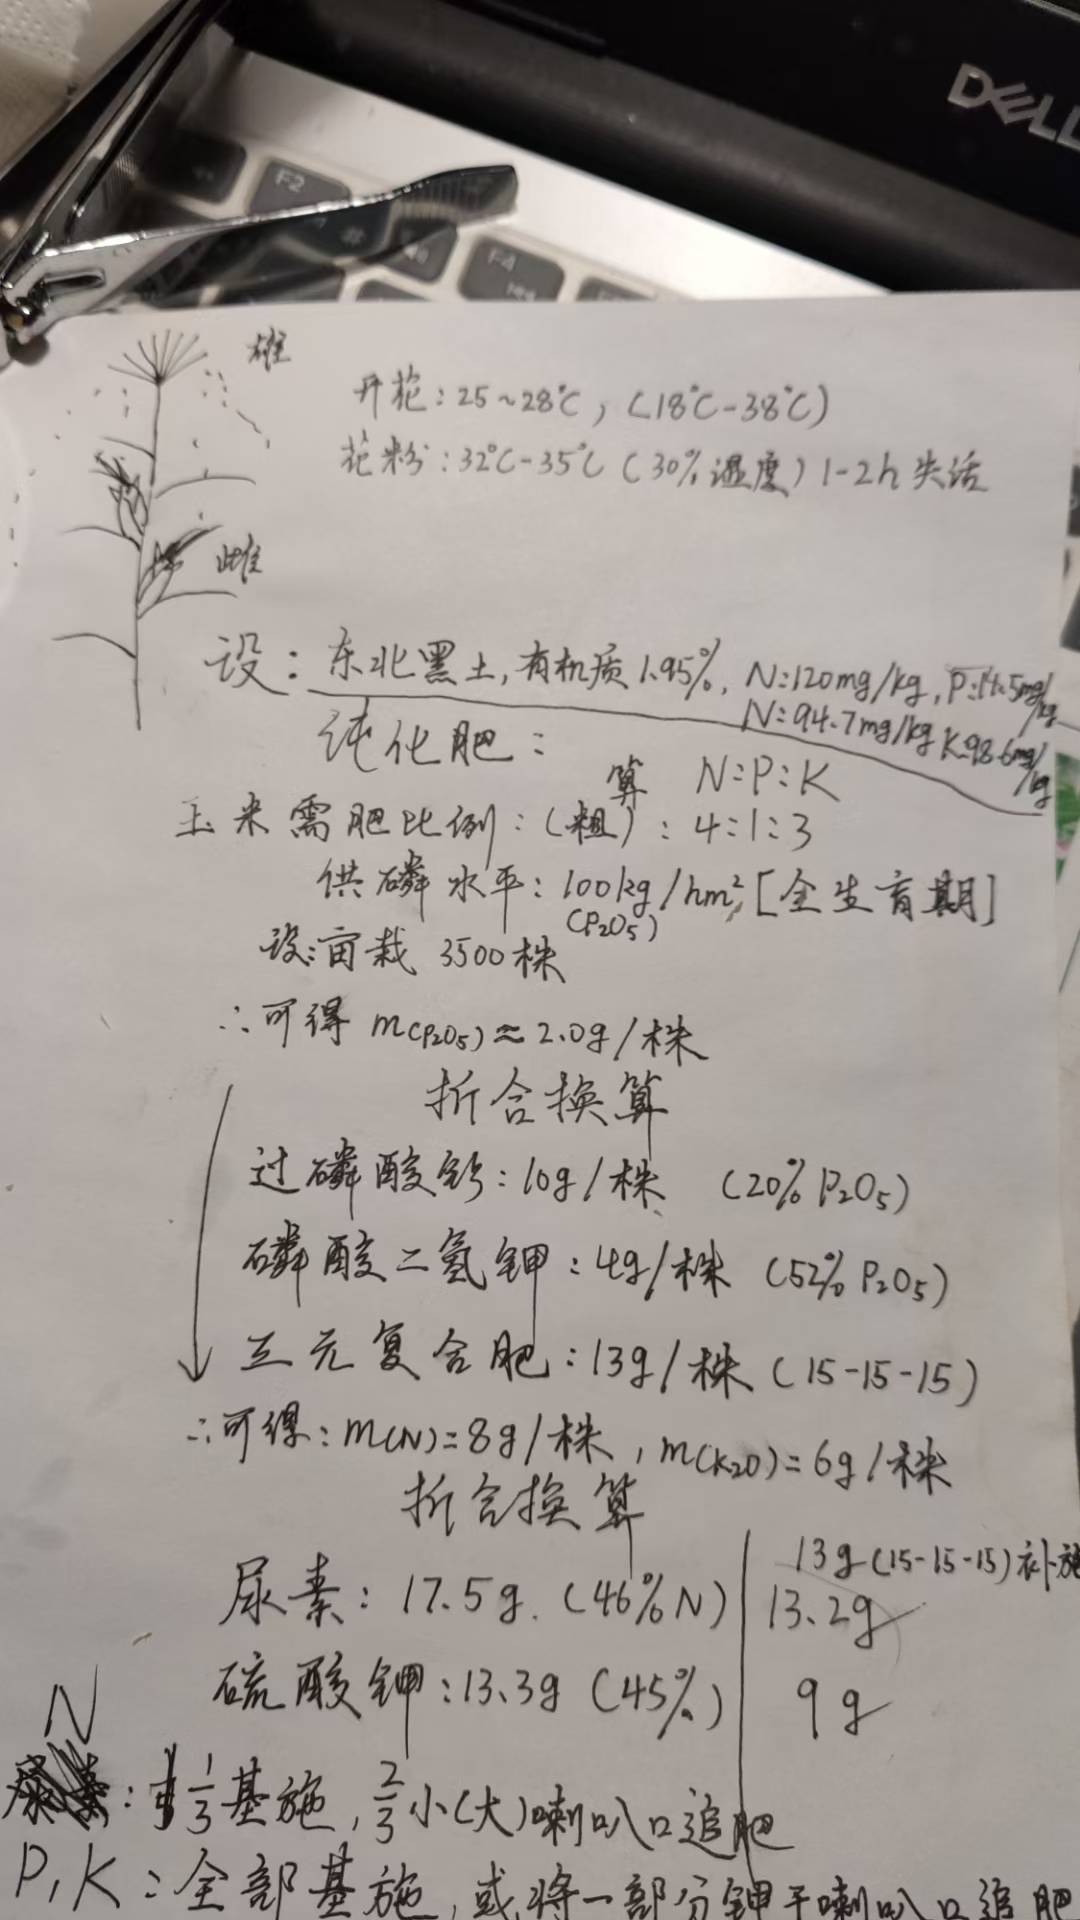 DELL
F2
F4
雄
开花：25~28℃，(18℃-38℃)
花粉：32℃-35℃(30%湿度) 1-2h失活
雌
设：东北黑土，有机质1.95%，N:120mg/kg，P:14.5mg/kg
N:94.7mg/kg K:98.6mg/kg
纯化肥：
算 N:P:K
玉米需肥比例：(粗)：4:1:3
供磷水平：100kg/hm²，[全生育期]
(P₂O₅)
设：亩栽 3500株
∴可得 m(P₂O₅)≈2.0g/株
折合换算
过磷酸钙：10g/株 (20% P₂O₅)
磷酸二氢钾：4g/株 (52% P₂O₅)
三元复合肥：13g/株 (15-15-15)
∴可得：m(N)=8g/株，m(K₂O)=6g/株
折合换算
13g(15-15-15)补施
尿素：17.5g. (46%N) 13.2g
硫酸钾：13.3g (45%) 9g
N
：1/3基施，2/3小(大)喇叭口追肥
P，K：全部基施，或将一部分钾于喇叭口追肥